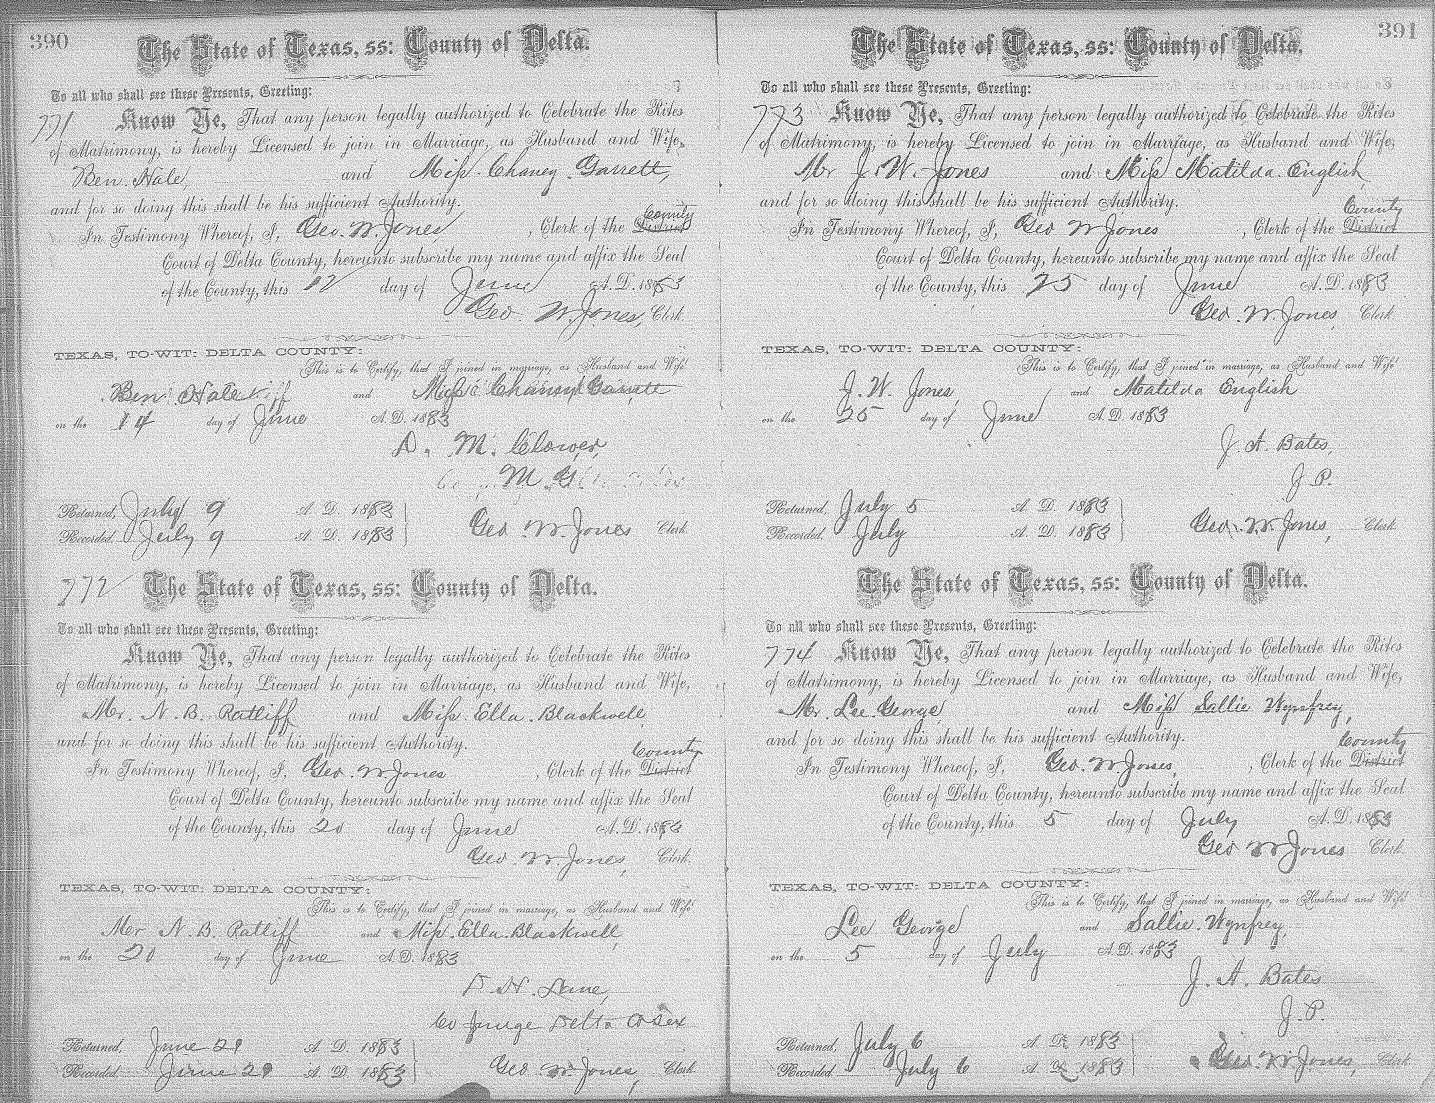 390
The State of Texas, ss: County of Delta.
To all who shall see these Presents, Greeting:
771 Know Ye, That any person legally authorized to Celebrate the Rites
of Matrimony, is hereby Licensed to join in Marriage, as Husband and Wife,
Ben. Hale, and Miss Chaney Garrett,
and for so doing this shall be his sufficient Authority.
County
In Testimony Whereof, I, Geo. W. Jones, Clerk of the District
Court of Delta County, hereunto subscribe my name and affix the Seal
of the County, this 12 day of June A.D. 1883
Geo W. Jones, Clerk
TEXAS, TO-WIT: DELTA COUNTY:
This is to Certify, that I joined in marriage, as Husband and Wife
Ben Hale and Miss Chaney Garrett
on the 14 day of June A.D. 1883
D. M. Clower,
M. G.
Returned, July 9 A. D. 1883
Recorded, July 9 A. D. 1883 Geo W. Jones Clerk
772 The State of Texas, ss: County of Delta.
To all who shall see these Presents, Greeting:
Know Ye, That any person legally authorized to Celebrate the Rites
of Matrimony, is hereby Licensed to join in Marriage, as Husband and Wife,
Mr. N. B. Ratliff and Miss. Ella. Blackwell
and for so doing this shall be his sufficient Authority.
County
In Testimony Whereof, I, Geo. W Jones, Clerk of the District
Court of Delta County, hereunto subscribe my name and affix the Seal
of the County, this 20 day of June A.D. 1883
Geo W Jones, Clerk
TEXAS, TO-WIT: DELTA COUNTY:
This is to Certify, that I joined in marriage, as Husband and Wife
Mr N. B. Ratliff and Miss. Ella. Blackwell,
on the 20 day of June A.D. 1883
D. H. Lane,
Co Judge Delta Co Tex
Returned, June 29 A. D. 1883
Recorded June 29 A. D. 1883 Geo W. Jones, Clerk
391
The State of Texas, ss: County of Delta.
To all who shall see these Presents, Greeting:
773 Know Ye, That any person legally authorized to Celebrate the Rites
of Matrimony, is hereby Licensed to join in Marriage, as Husband and Wife,
Mr J. W. Jones and Miss Matilda. English,
and for so doing this shall be his sufficient Authority.
County
In Testimony Whereof, I, Geo W Jones, Clerk of the District
Court of Delta County, hereunto subscribe my name and affix the Seal
of the County, this 25 day of June A.D. 1883
Geo. W Jones, Clerk
TEXAS, TO-WIT: DELTA COUNTY:
This is to Certify, that I joined in marriage, as Husband and Wife
J. W. Jones, and Matilda English
on the 25 day of June A.D. 1883
J A. Bates,
J P.
Returned, July 5 A. D. 1883
Recorded, July A. D. 1883 Geo. W. Jones, Clerk
The State of Texas, ss: County of Delta.
To all who shall see these Presents, Greeting:
774 Know Ye, That any person legally authorized to Celebrate the Rites
of Matrimony, is hereby Licensed to join in Marriage, as Husband and Wife,
Mr. Lee. George and Miss Sallie Wynfrey,
and for so doing this shall be his sufficient Authority.
County
In Testimony Whereof, I, Geo. W. Jones, Clerk of the District
Court of Delta County, hereunto subscribe my name and affix the Seal
of the County, this 5 day of July A.D. 1883
Geo W Jones Clerk.
TEXAS, TO-WIT: DELTA COUNTY:
This is to Certify, that I joined in marriage, as Husband and Wife
Lee George and Sallie. Wynfrey
on the 5 day of July A.D. 1883
J. A. Bates
J. P.
Returned, July 6 A. D. 1883
Recorded July 6 A. D. 1883 Geo. W. Jones, Clerk